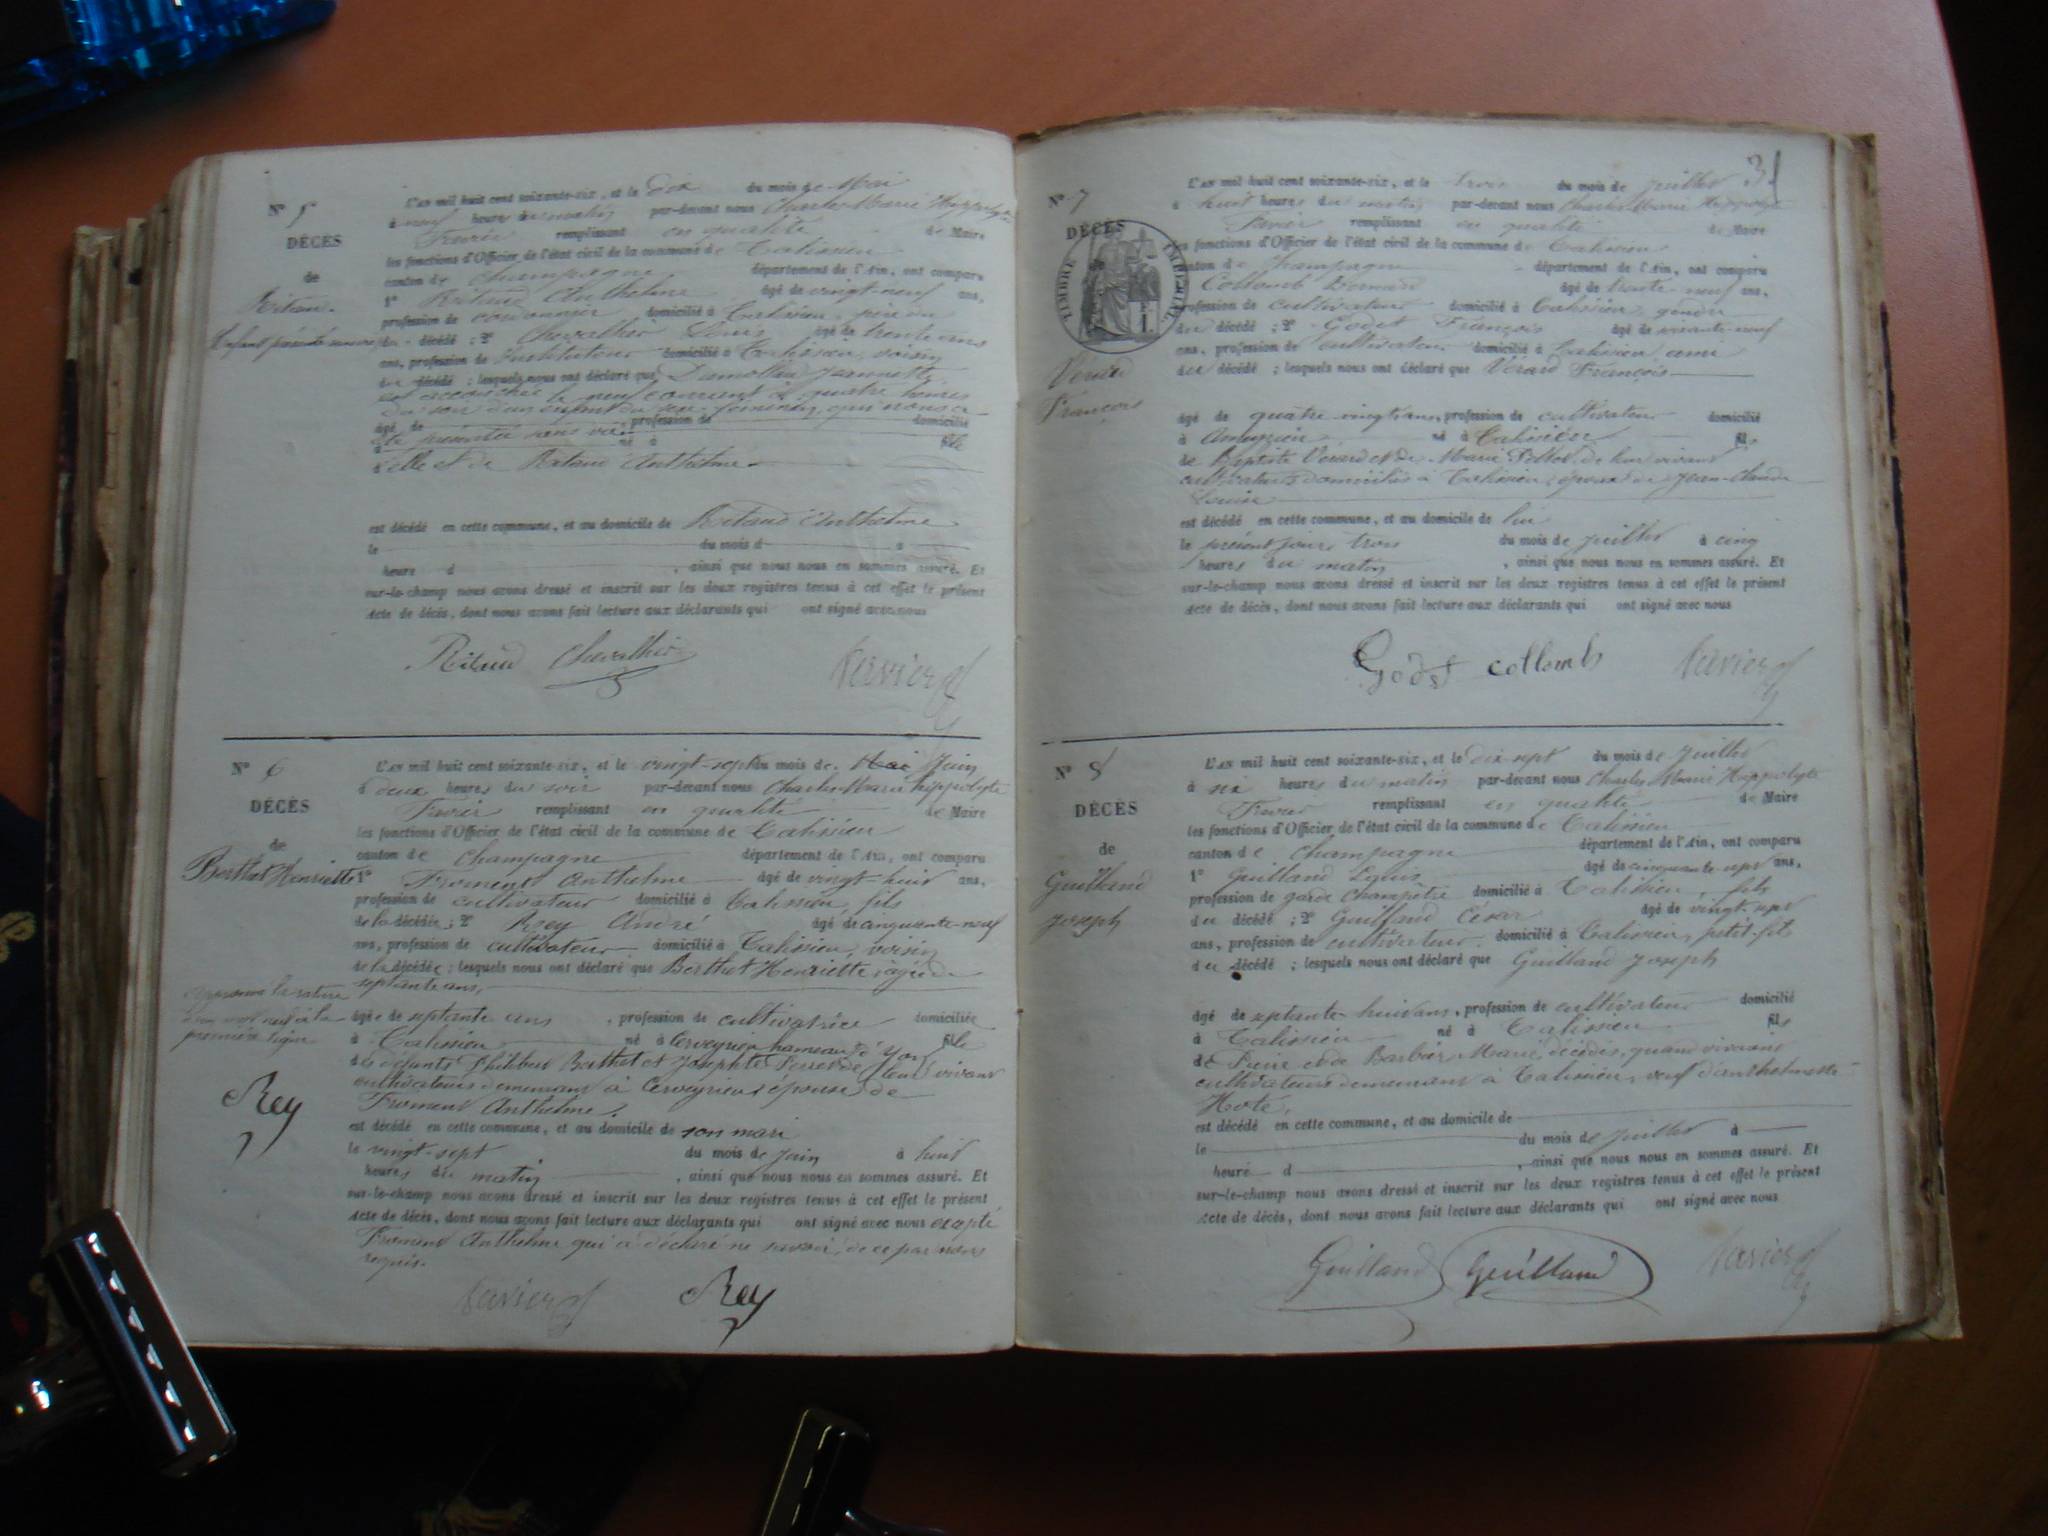 N° 5
DÉCÈS
de
Ritaud
Enfant présenté sans vie
L'AN mil huit cent soixante-six, et le dix du mois de Mai
à neuf heures du matin par-devant nous Charles Marie Hippolyte
Favier remplissant en qualité de Maire
les fonctions d'Officier de l'état civil de la commune de Talissieu
canton de Champagne département de l'Ain, ont comparu
1° Ritaud Anthelme âgé de vingt-neuf ans,
profession de cordonnier domicilié à Talissieu, père du
décédé ; 2° Chevallier Louis âgé de trente ans
ans, profession de instituteur domicilié à Talissieu, voisin
du décédé ; lesquels nous ont déclaré que Dumollard Jeannette
est accouchée le neuf courant à quatre heures
du soir d'un enfant du sexe féminin, qui nous a
âgé de profession de domicilié
été présenté sans vie
à né à fille
d'elle et de Ritaud Anthelme
est décédé en cette commune, et au domicile de Ritaud Anthelme
le du mois d à
heure d , ainsi que nous nous en sommes assuré. Et
sur-le-champ nous avons dressé et inscrit sur les deux registres tenus à cet effet le présent
Acte de décès, dont nous avons fait lecture aux déclarants qui ont signé avec nous
Ritaud Chevallier Favier
N° 6
DÉCÈS
de
Berthet Henriette
L'AN mil huit cent soixante-six, et le vingt-sept du mois de Mai Juin
à deux heures du soir par-devant nous Charles Marie hippolyte
Favier remplissant en qualité de Maire
les fonctions d'Officier de l'état civil de la commune de Talissieu
canton de Champagne département de l'Ain, ont comparu
1° Froment Anthelme âgé de vingt-huit ans,
profession de cultivateur domicilié à Talissieu, fils
de la décédée ; 2° Rey André âgé de cinquante-neuf
ans, profession de cultivateur domicilié à Talissieu, voisin
de la décédée ; lesquels nous ont déclaré que Berthet Henriette, âgée de
septante ans,
âgée de septante ans , profession de cultivatrice domiciliée
à Talissieu née à Cerveyrieu hameau d' fille
des défunts Philibert Berthet et Josephte leur vivant
cultivateurs demeurant à Cerveyrieu, épouse de
Froment Anthelme.
est décédé en cette commune, et au domicile de son mari
le vingt-sept du mois de juin à huit
heures du matin , ainsi que nous nous en sommes assuré. Et
sur-le-champ nous avons dressé et inscrit sur les deux registres tenus à cet effet le présent
Acte de décès, dont nous avons fait lecture aux déclarants qui ont signé avec nous excepté
Froment Anthelme qui a déclaré ne savoir, de ce par nous
requis.
approuvé la rature
d'un mot nul à la
première ligne
Rey
Favier Rey
31
N° 7
DÉCÈS
TIMBRE IMPERIAL
1 F.
Vérard
François
L'AN mil huit cent soixante-six, et le trois du mois de juillet
à huit heures du matin par-devant nous Charles Marie Hippolyte
Favier remplissant en qualité de Maire
les fonctions d'Officier de l'état civil de la commune de Talissieu
canton de Champagne département de l'Ain, ont comparu
Collomb Bernard âgé de trente-neuf ans,
profession de cultivateur domicilié à Talissieu, gendre
du décédé ; 2° Godet François âgé de soixante-neuf
ans, profession de cultivateur domicilié à Talissieu, ami
du décédé ; lesquels nous ont déclaré que Vérard François
âgé de quatre vingts ans, profession de cultivateur domicilié
à Ameyzieu né à Talissieu fils
de Baptiste Vérard et de Marie de leur vivant
cultivateurs domiciliés à Talissieu, époux de Jean-Claude
Louise
est décédé en cette commune, et au domicile de lui
le présent jour trois du mois de juillet à cinq
heures du matin , ainsi que nous nous en sommes assuré. Et
sur-le-champ nous avons dressé et inscrit sur les deux registres tenus à cet effet le présent
Acte de décès, dont nous avons fait lecture aux déclarants qui ont signé avec nous
Godet collomb Favier
N° 8
DÉCÈS
de
Guilland
Joseph
L'AN mil huit cent soixante-six, et le dix-sept du mois de juillet
à six heures du matin par-devant nous Charles Marie Hippolyte
Favier remplissant en qualité de Maire
les fonctions d'Officier de l'état civil de la commune de Talissieu
canton de Champagne département de l'Ain, ont comparu
1° Guilland Louis âgé de cinquante-sept ans,
profession de garde champêtre domicilié à Talissieu, fils
du décédé ; 2° Guilland César âgé de vingt-sept
ans, profession de cultivateur domicilié à Talissieu, petit-fils
du décédé ; lesquels nous ont déclaré que Guilland Joseph
âgé de septante-huit ans, profession de cultivateur domicilié
à Talissieu né à Talissieu fils
de Pierre et de Barbier Marie, décédés, quand vivaient
cultivateurs demeurant à Talissieu, veuf d'anthelmette
Hoté,
est décédé en cette commune, et au domicile de
le du mois de juillet à
heure d , ainsi que nous nous en sommes assuré. Et
sur-le-champ nous avons dressé et inscrit sur les deux registres tenus à cet effet le présent
Acte de décès, dont nous avons fait lecture aux déclarants qui ont signé avec nous
Guilland Guilland Favier